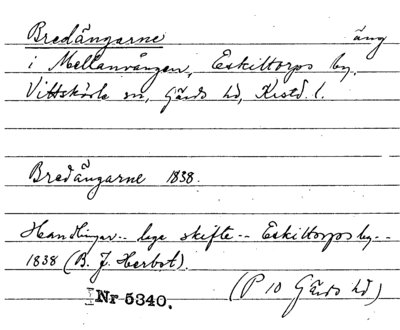 Bredängarne äng
i Mellanvången, Eskiltorps by.
Vittskövle sn, Gärds hd, Kristd. l.
Bredängarne 1838.
Handlingar -- lage skifte -- Eskiltorps by --
1838 (B. J. Herbst).
Nr 5340. (P 10 Gärds hd)